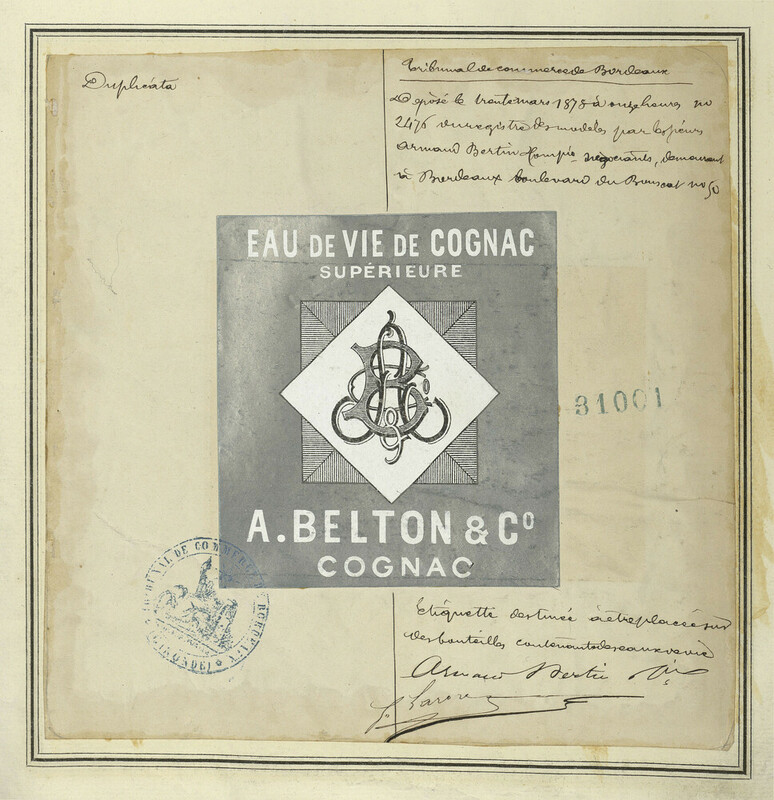 Duplicata
Tribunal de commerce de Bordeaux
Déposé le trente mars 1878 à onze heures no
2476 du registre des modèles par les sieurs
Armand Bertin & Compie négociants, demeurant
à Bordeaux boulevard du Bouscat no 50
EAU DE VIE DE COGNAC
SUPÉRIEURE
31001
A. BELTON & Co
COGNAC
TRIBUNAL DE COMMERCE DE BORDEAUX
(GIRONDE)
Etiquette destinée à être placée sur
des bouteilles contenant des eaux de vie
Armand Bertin